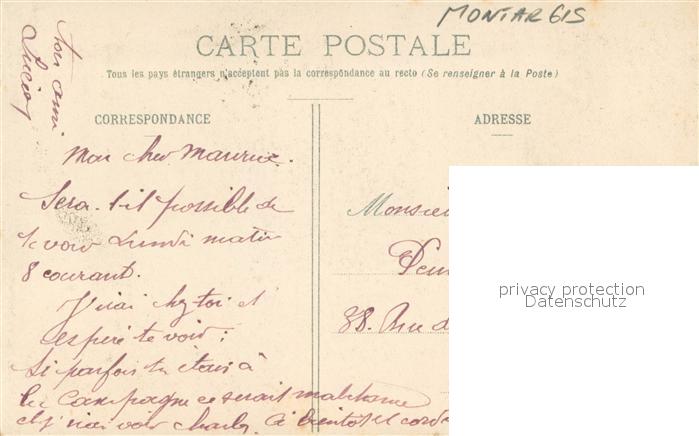 MONTARGIS
CARTE POSTALE
Tous les pays étrangers n'acceptent pas la correspondance au recto (Se renseigner à la Poste)
CORRESPONDANCE
ADRESSE
Mon cher Maurice.
Sera-t-il possible de
te voir Lundi matin
8 courant.
J'irai chez toi et
espère te voir;
si parfois tu étais à
la Campagne ce serait
et j'irai voir Charles. à bientôt et cord
Ton ami
Lucien
Monsie
38. Rue d
privacy protection
Datenschutz